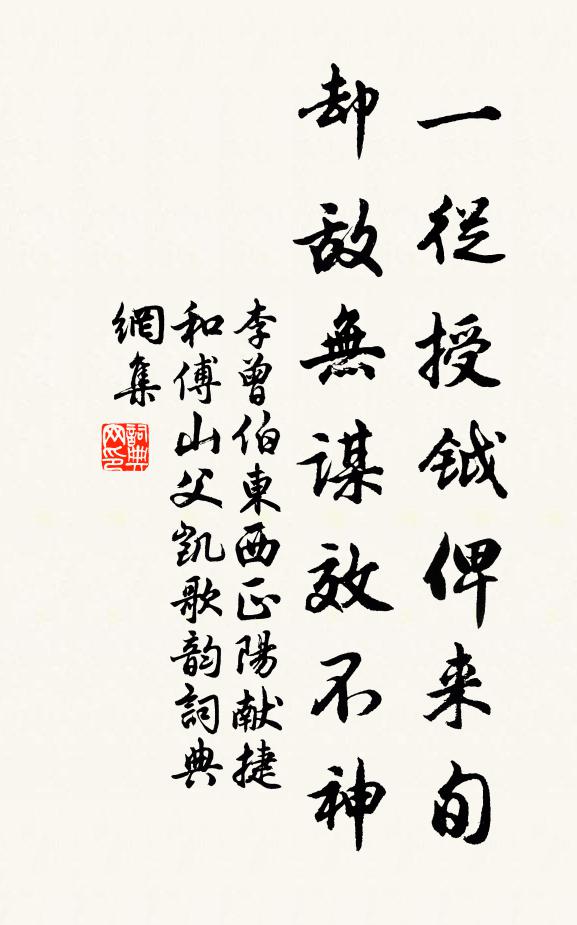 一從授鉞俾来旬
却敌無謀效不神
李曾伯東西正陽献捷
和傅山父凱歌韵詞典
網集
詞典
网印